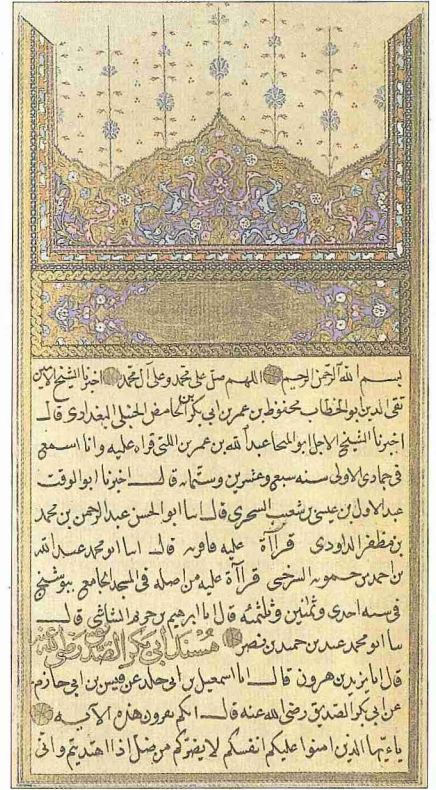 بسم الله الرحمن الرحيم اللهم صل على محمد وعلى آل محمد اخبرنا الشيخ الامين
تقي الدين ابو الخطاب محفوظ بن عمر بن ابي بكر بن الحامض الحنبلي البغدادي قال
اخبرنا الشيخ الاجل ابو المنجا عبد الله بن عمر بن اللتي قراه عليه وانا اسمع
في جمادى الاولى سنه سبع وعشرين وستمايه قال اخبرنا ابو الوقت
عبد الاول بن عيسى بن شعيب السجزي قال ابنا ابو الحسن عبد الرحمن بن محمد
بن مظفر الداودي قرآأة عليه فاقر به قال ابنا ابو محمد عبد الله
بن احمد بن حمويه السرخسي قرآأة عليه من اصله في المسجد الجامع ببوشنج
في سنه احدى وثمنين وثلثمئه قال انا ابرهيم بن خزيم الشاشي قال
ابنا ابو محمد عبد بن حميد بن نصر مسند ابي بكر الصديق رضي الله عنه
قال انا يزيد بن هرون قال انا اسمعيل بن ابي خلد عن قيس بن ابي حازم
عن ابي بكر الصديق رضي الله عنه قال انكم تقرون هذه الآيه
ياءيها الذين امنوا عليكم انفسكم لا يضركم من ضل اذا اهتديتم واني